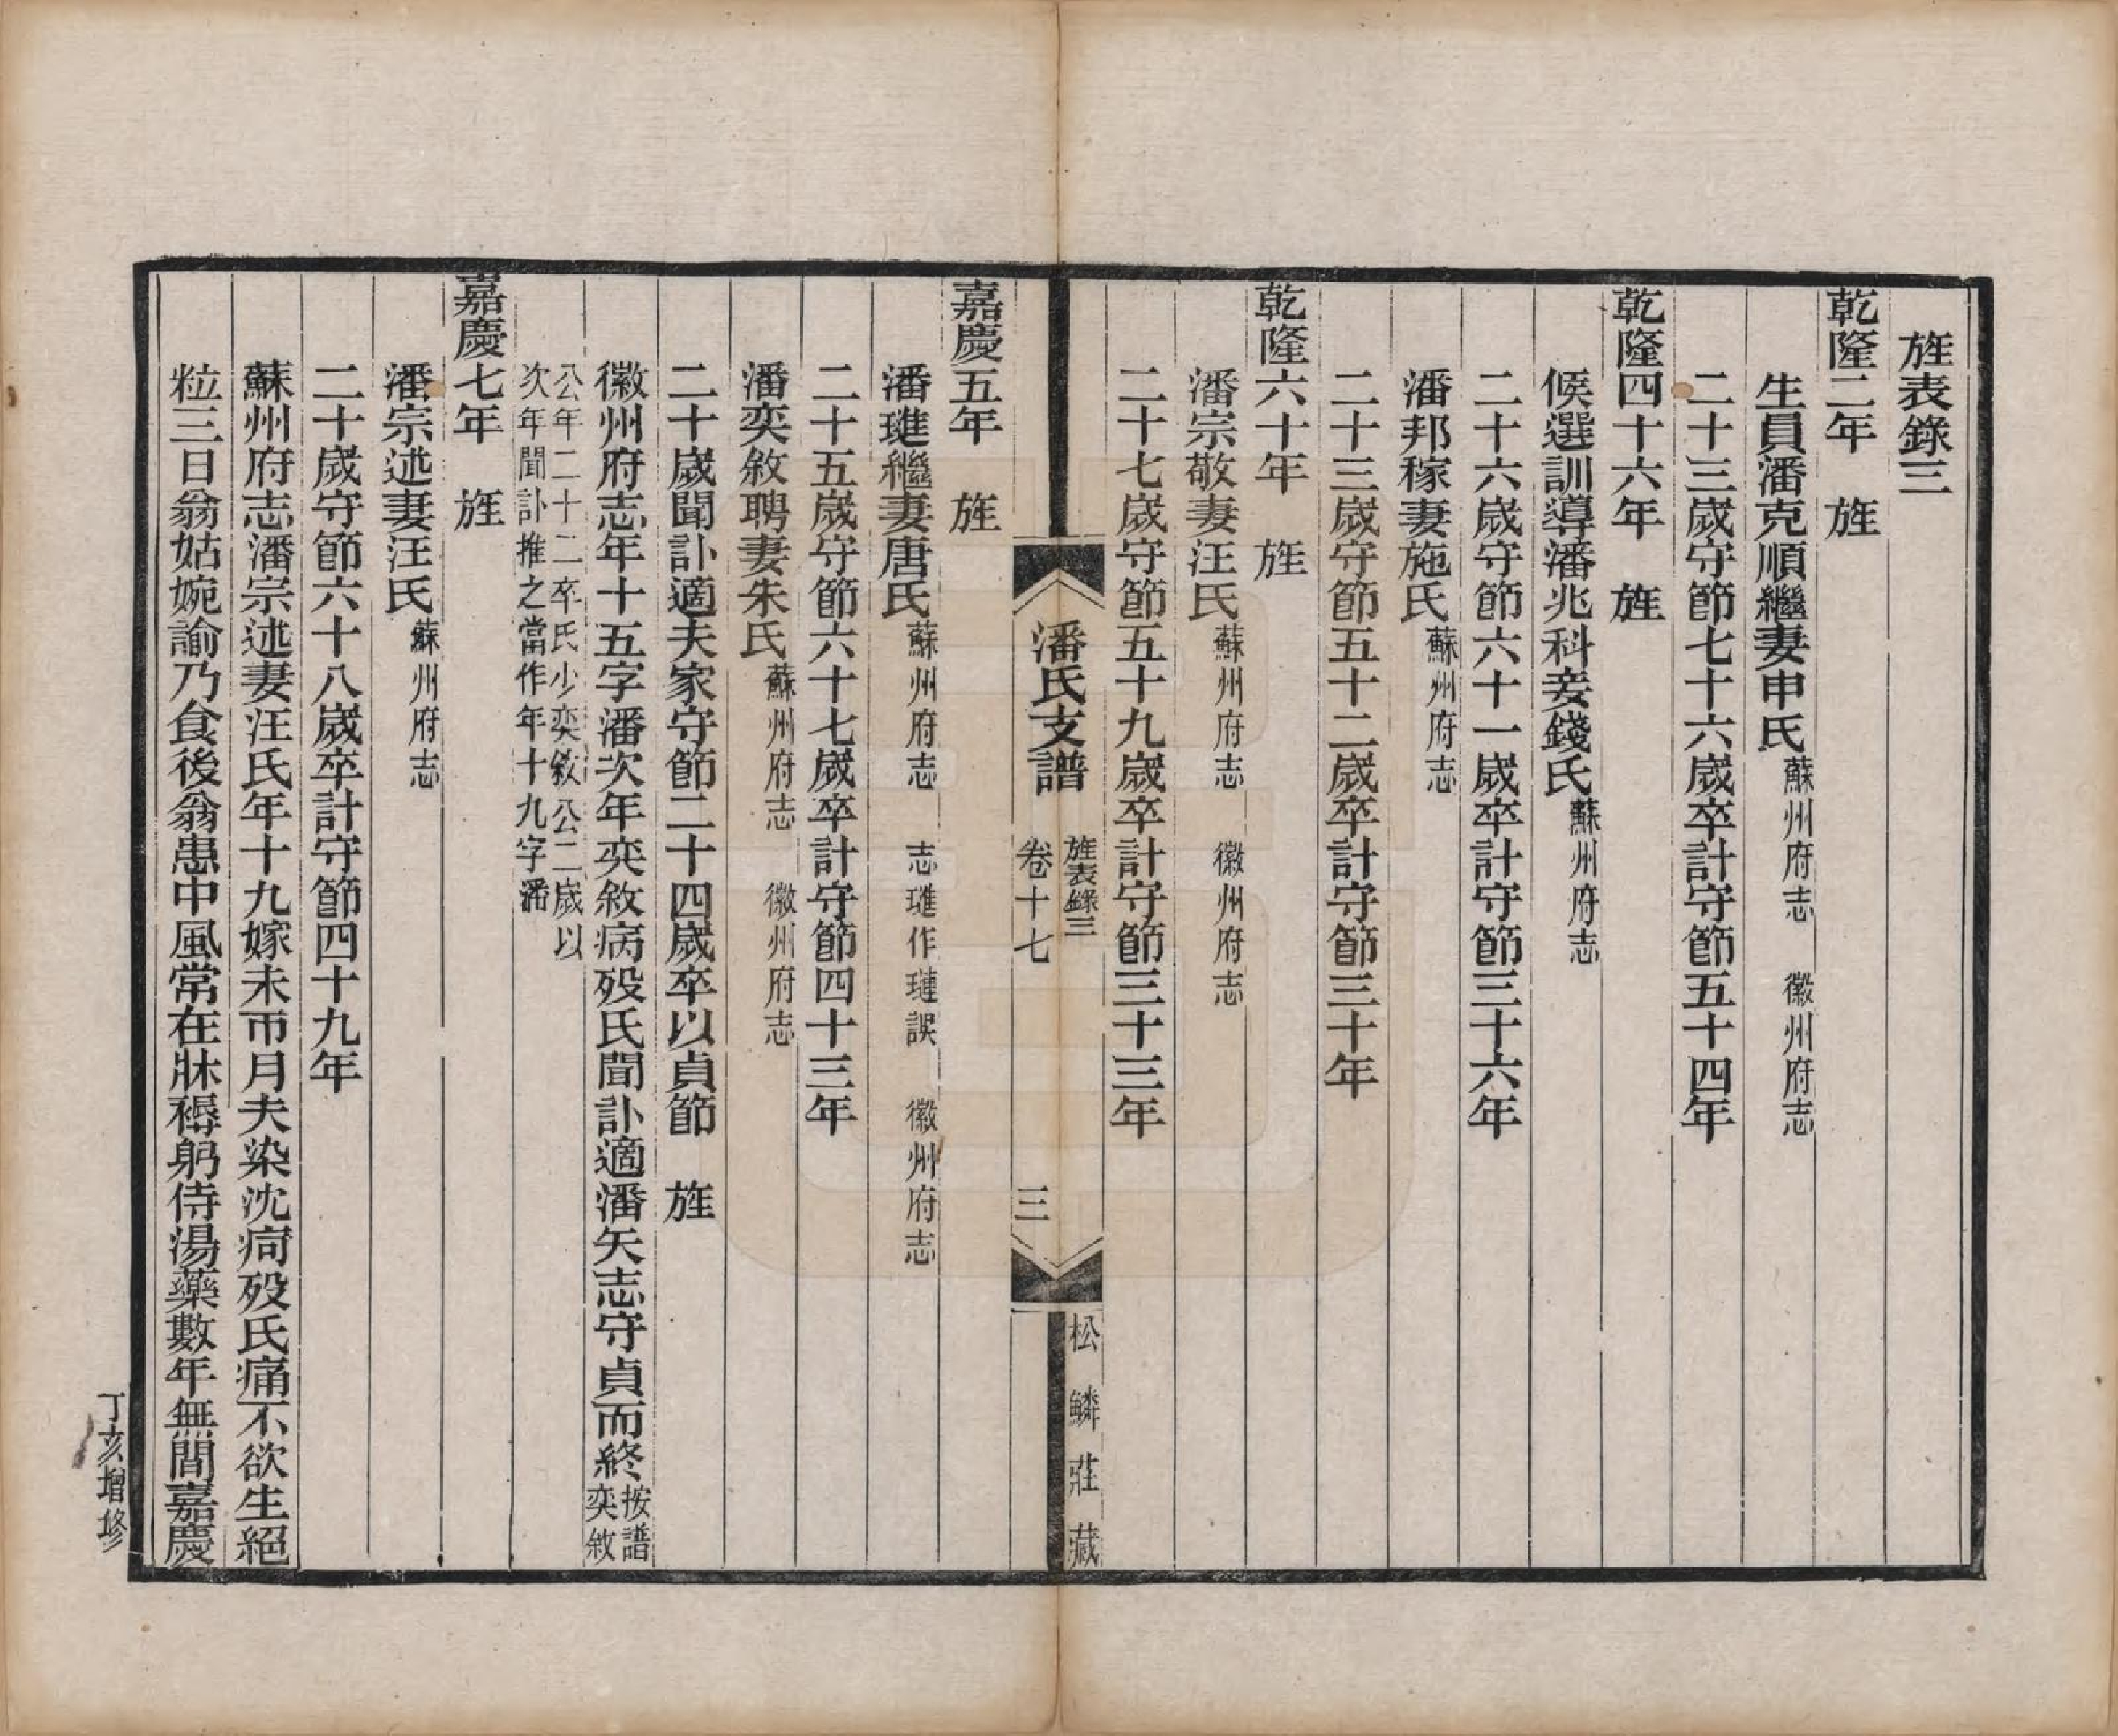 旌表錄三
乾隆二年　旌
生員潘克順繼妻申氏蘇州府志　徽州府志
二十三歲守節七十六歲卒計守節五十四年
乾隆四十六年　旌
候選訓導潘兆科妾錢氏蘇州府志
二十六歲守節六十一歲卒計守節三十六年
潘邦稼妻施氏蘇州府志
二十三歲守節五十二歲卒計守節三十年
乾隆六十年　旌
潘宗敬妻汪氏蘇州府志　徽州府志
二十七歲守節五十九歲卒計守節三十三年
潘氏支譜　旌表錄三
卷十七　三
松鱗莊藏
嘉慶五年　旌
潘璡繼妻唐氏蘇州府志　志璡作璉誤　徽州府志
二十五歲守節六十七歲卒計守節四十三年
潘奕敘聘妻朱氏蘇州府志　徽州府志
二十歲聞訃適夫家守節二十四歲卒以貞節　旌
徽州府志年十五字潘次年奕敘病歿氏聞訃適潘矢志守貞而終按譜奕敘
公年二十二卒氏少奕敘公二歲以
次年聞訃推之當作年十九字潘
嘉慶七年　旌
潘宗述妻汪氏蘇州府志
二十歲守節六十八歲卒計守節四十九年
蘇州府志潘宗述妻汪氏年十九嫁未帀月夫染沈疴歿氏痛不欲生絕
粒三日翁姑婉諭乃食後翁患中風常在牀褥躬侍湯藥數年無間嘉慶
丁亥增修